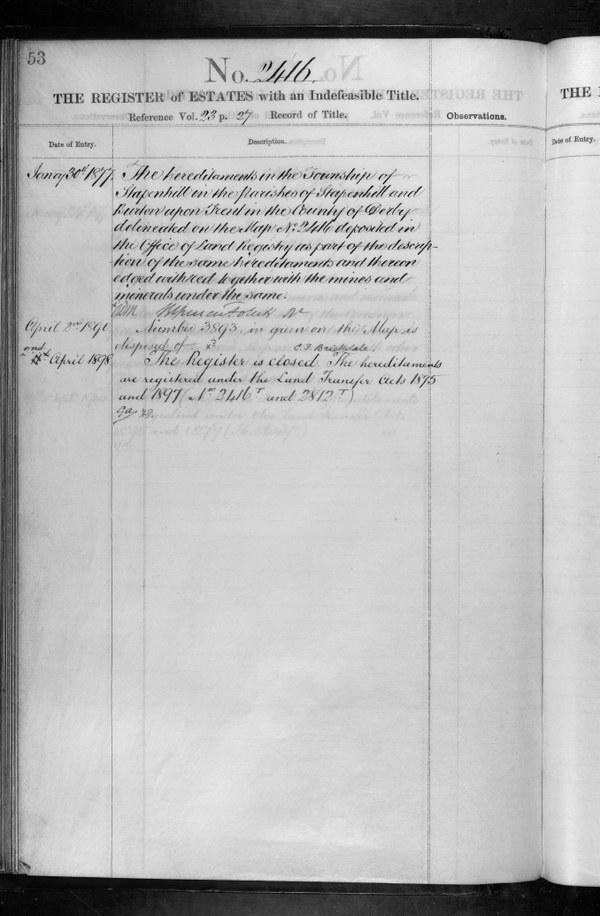 53
No. 2416.
THE REGISTER of ESTATES with an Indefeasible Title.
Reference Vol. 23 p. 27 Record of Title.
Observations.
Date of Entry.
Description.
Jany 30th 1877.
The hereditaments in the Township of
Stapenhill in the Parishes of Stapenhill and
Burton upon Trent in the County of Derby
delineated on the Map No. 2416 deposited in
the Office of Land Registry as part of the descrip-
tion of the same hereditaments and thereon
edged with red together with the mines and
minerals under the same.
April 2nd 1890
Number 3893, in green on the Map is
disposed of
April 1898.
The Register is closed. The hereditaments
are registered under the Land Transfer Acts 1875
and 1897 (Nos 2416T and 2812T)
THE
Date of Entry.